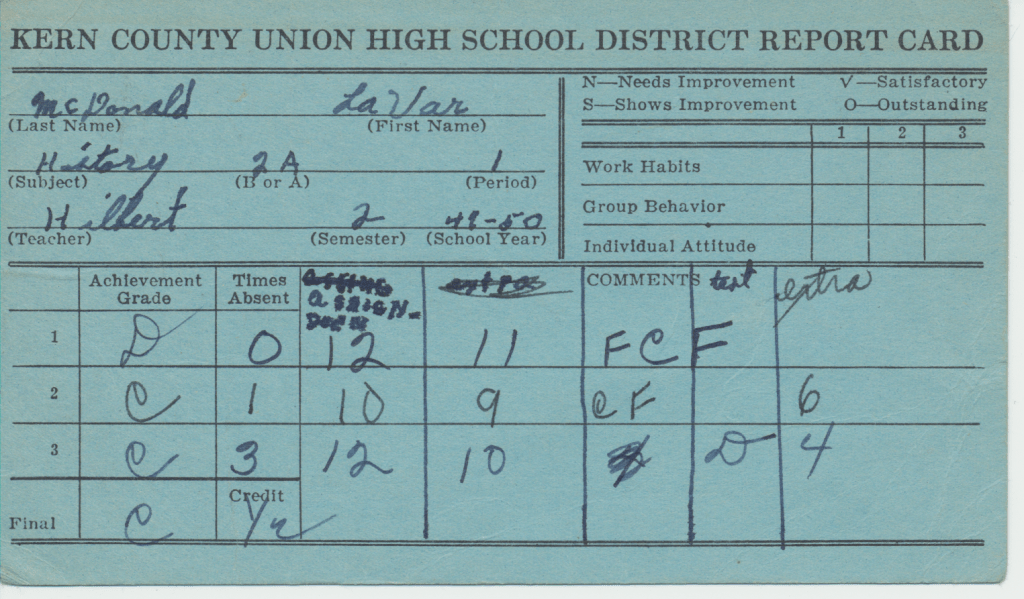 KERN COUNTY UNION HIGH SCHOOL DISTRICT REPORT CARD
McDonald LaVar
(Last Name) (First Name)
History 2A 1
(Subject) (B or A) (Period)
Hilbert 2 49-50
(Teacher) (Semester) (School Year)
N—Needs Improvement V—Satisfactory
S—Shows Improvement O—Outstanding
1 2 3
Work Habits
Group Behavior
Individual Attitude
Achievement Grade Times Absent COMMENTS test extra
1 D 0 12 11 FC F
2 C 1 10 9 CF 6
3 C 3 12 10 D 4
Credit
Final C